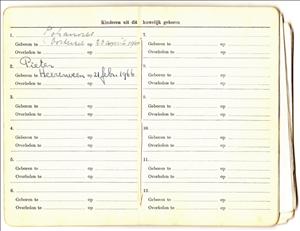 Kinderen uit dit huwelijk geboren
1. Johannes
Geboren te op 30 april 19
Overleden te op
2. Pieter
Geboren te Heerenveen op 21 febr. 1966
Overleden te op
3.
Geboren te op
Overleden te op
4.
Geboren te op
Overleden te op
5.
Geboren te op
Overleden te op
6.
Geboren te op
Overleden te op
7.
Geboren te op
Overleden te op
8.
Geboren te op
Overleden te op
9.
Geboren te op
Overleden te op
10.
Geboren te op
Overleden te op
11.
Geboren te op
Overleden te op
12.
Geboren te op
Overleden te op